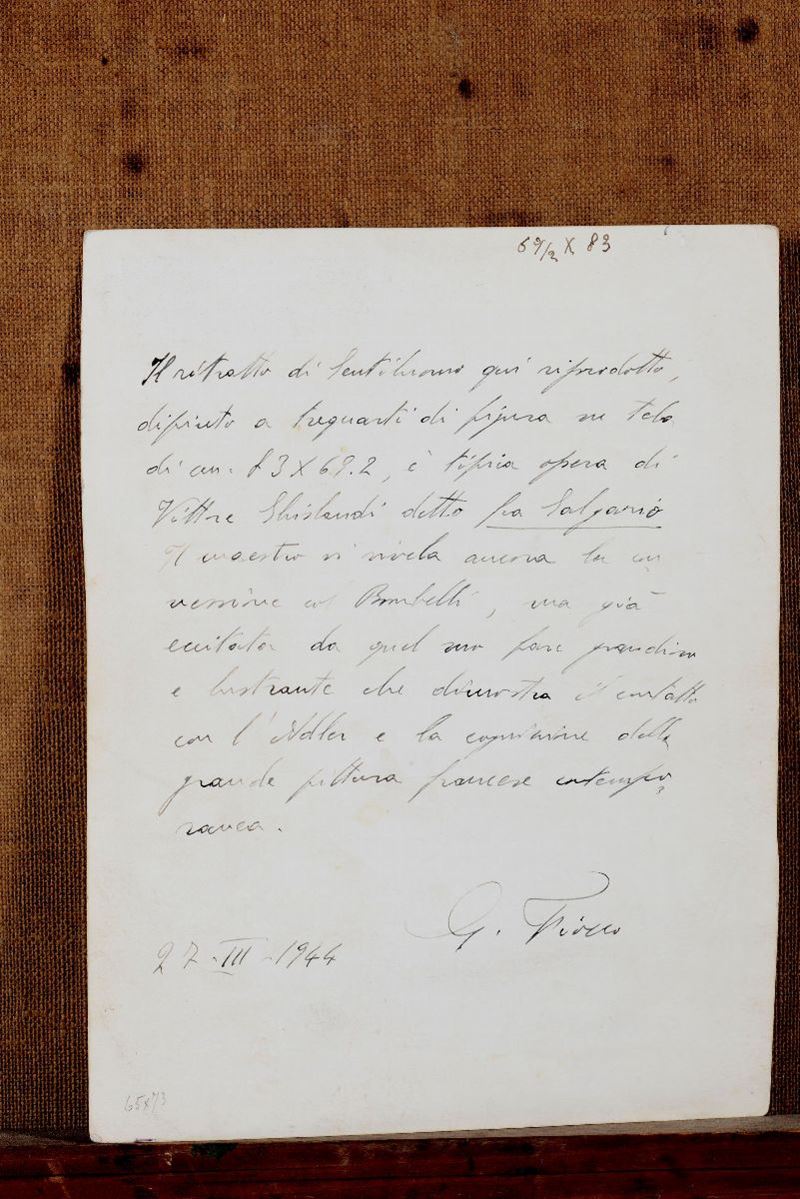 69/2 X 83
Il ritratto di Gentiluomo qui riprodotto,
dipinto a trequarti di figura su tela
di cm. 83 X 69.2, è tipica opera di
Vittore Ghislandi detto fra Galgario
Il maestro vi rivela ancora la con
nessione col Bombelli, ma già
eccitata da quel suo fare grandioso
e lustrante che dimostra il contatto
con l'Adler e la cognizione della
grande pittura francese contempo-
ranea.
G. Fiocco
27-III-1944
65x73